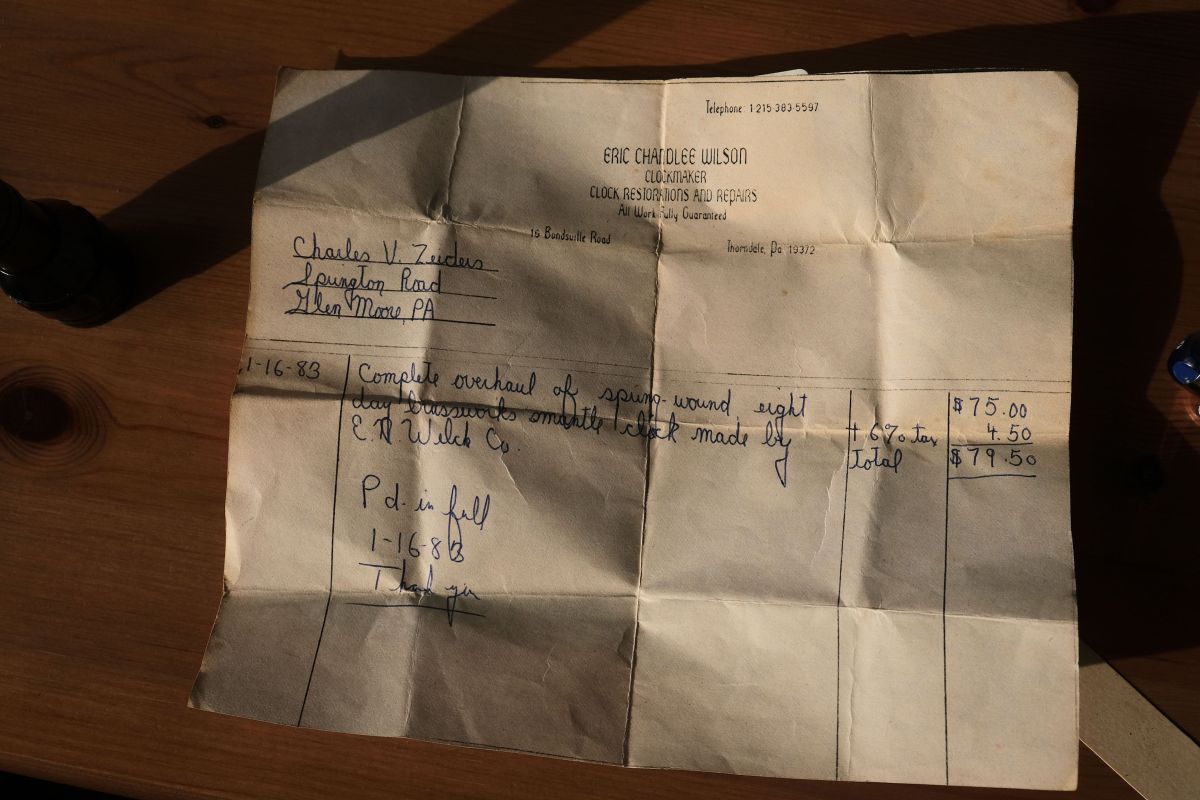 Telephone 1-215-383-5597
ERIC CHANDLEE WILSON
CLOCKMAKER
CLOCK RESTORATIONS AND REPAIRS
All Work Fully Guaranteed
16 Bondsville Road Thorndale, Pa 19372
Charles V. Zeiders
Spington Road
Glen Moore, PA
1-16-83 Complete overhaul of spring-wound, eight $75.00
day brassworks mantle clock made by + 6% tax 4.50
E. N. Welch Co. total $79.50
Pd. in full
1-16-83
Thank you